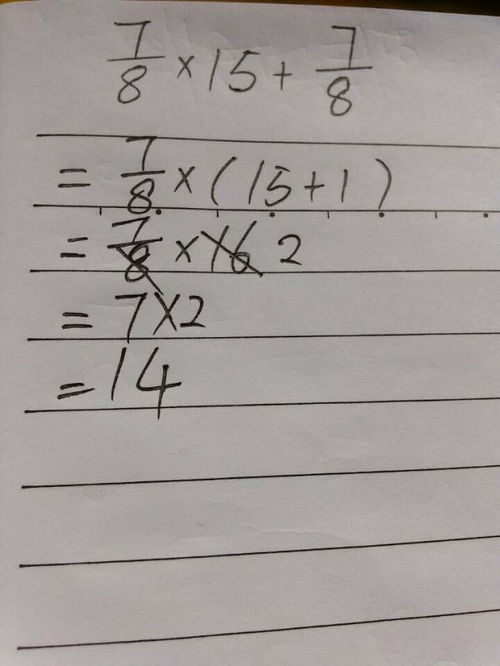 7/8 × 15 + 7/8
= 7/8 × (15 + 1)
= 7/8 × 16 2
= 7 × 2
= 14